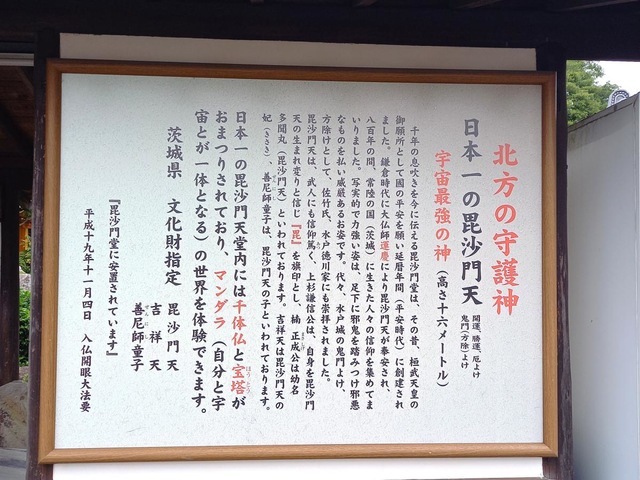 北方の守護神
日本一の毘沙門天
開運、勝運、厄よけ
鬼門(方除)よけ
宇宙最強の神(高さ十六メートル)
千年の息吹きを今に伝える毘沙門堂は、その昔、桓武天皇の
御願所として国の平安を願い延暦年間(平安時代)に創建され
ました。鎌倉時代に大仏師運慶により毘沙門天が奉安され、
八百年の間、常陸の国(茨城)に生きた人々の信仰を集めてま
いりました。写実的で力強い姿は、足下に邪鬼を踏みつけ邪悪
なものを払い威厳あるお姿です。代々、水戸城の鬼門よけ、
方除けとして、佐竹氏、水戸徳川家にも崇拝されました。
毘沙門天は、武人にも信仰篤く、上杉謙信公は、自身を毘沙門
天の生まれ変りと信じ『毘』を旗印とし、楠正成公は幼名
多聞丸(毘沙門天)といわれております。吉祥天は毘沙門天の
妃(きさき)、善尼師童子は、毘沙門天の子といわれております。
日本一の毘沙門天堂内には千体仏と宝塔が
おまつりされており、マンダラ(自分と宇
宙とが一体となる)の世界を体験できます。
茨城県 文化財指定
毘沙門天
吉祥天
善尼師童子
『毘沙門堂に安置されています』
平成十九年十一月四日 入仏開眼大法要